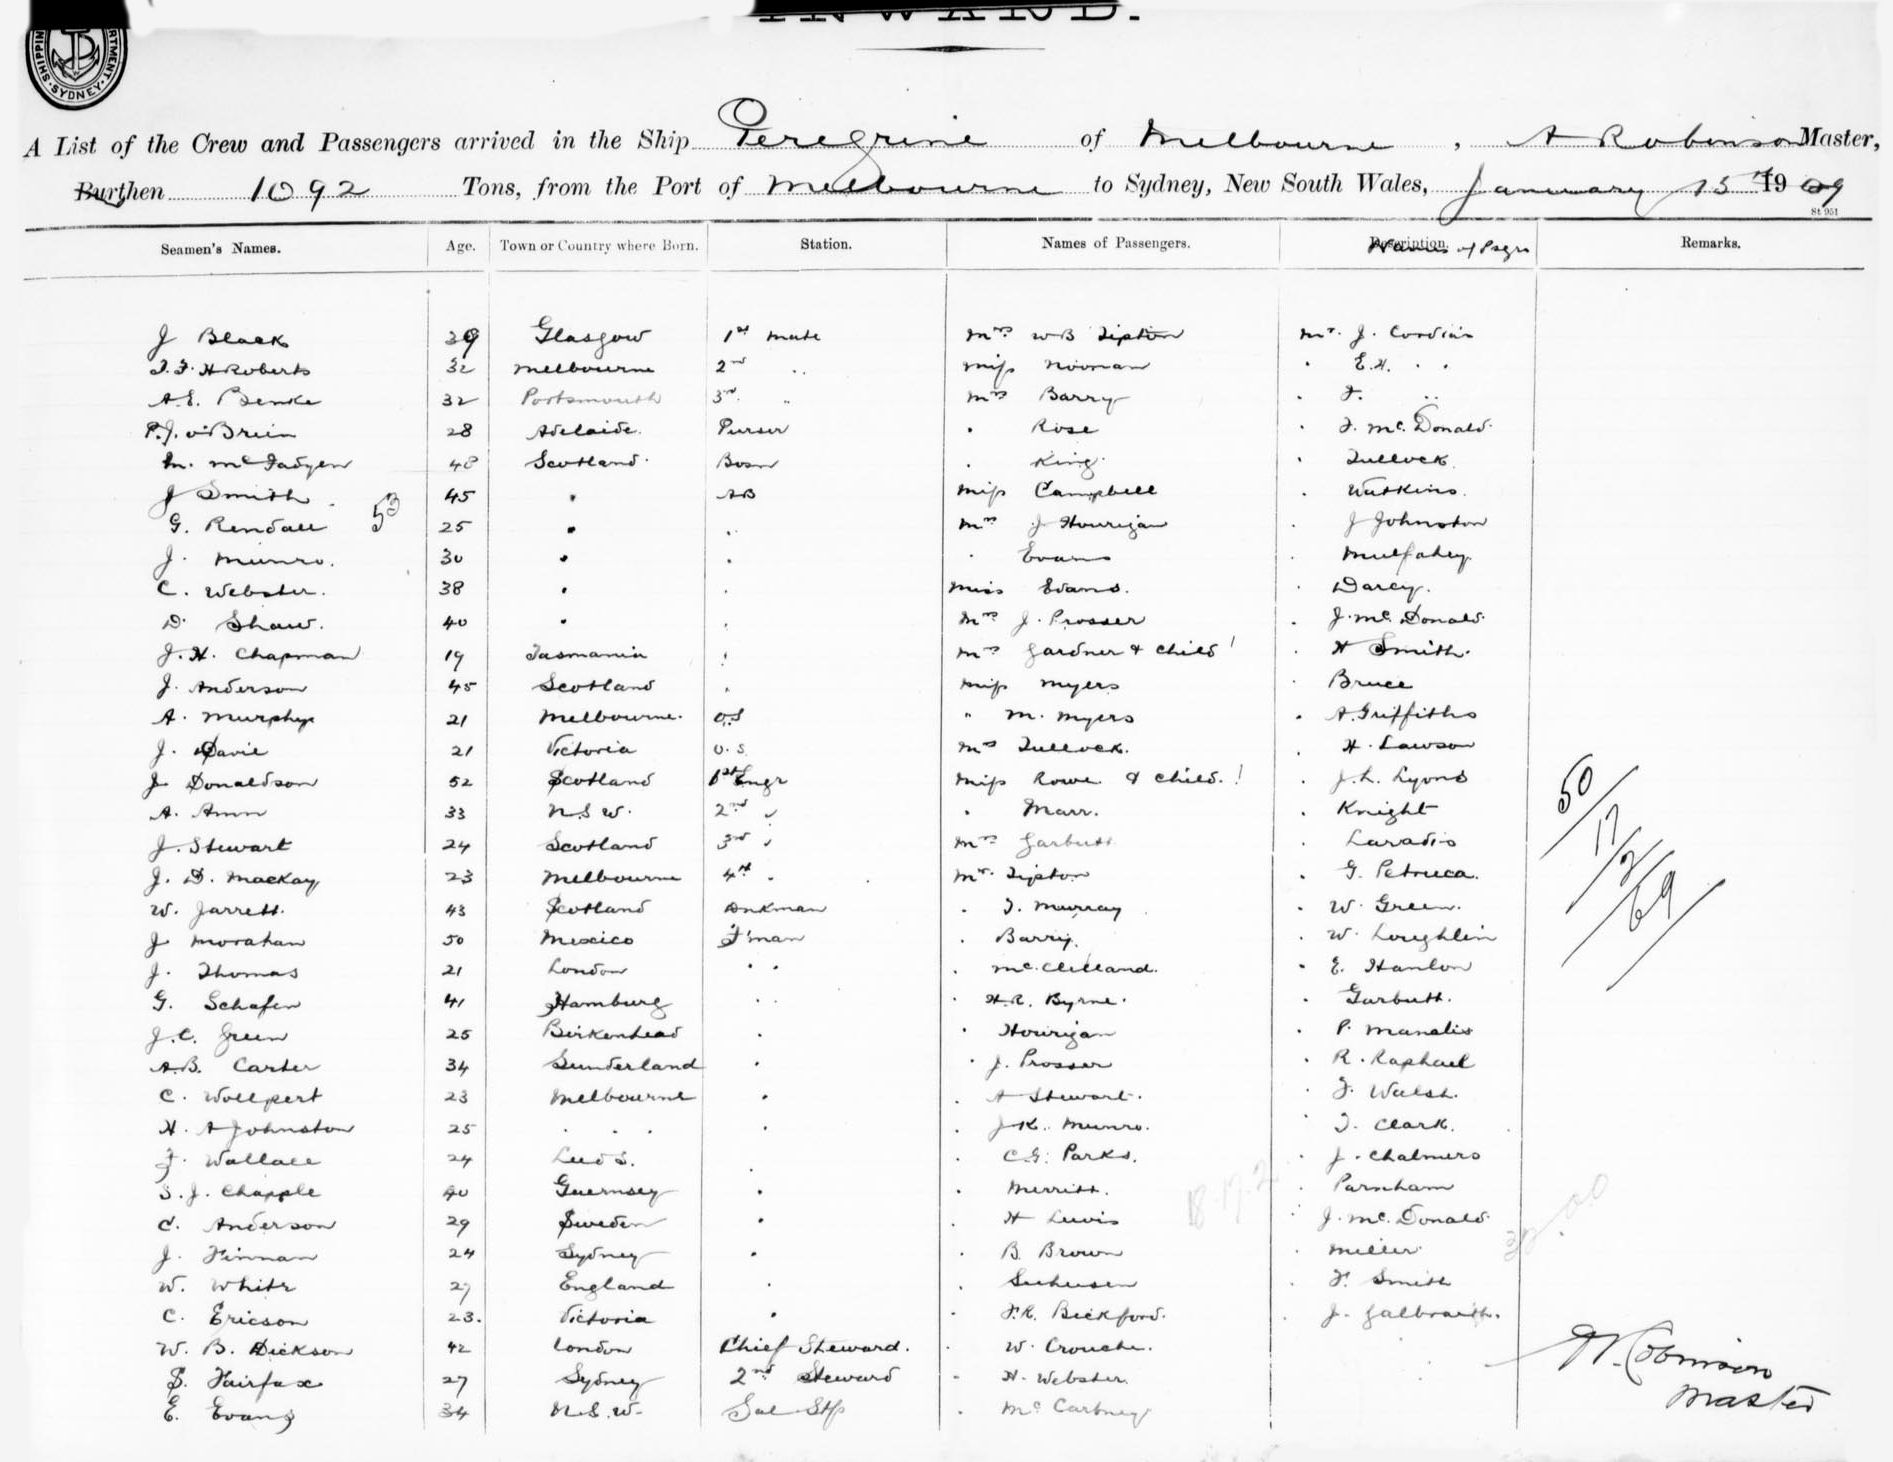 INWARD.
SHIPPING DEPARTMENT. SYDNEY
A List of the Crew and Passengers arrived in the Ship Peregrine of Melbourne, A Robinson Master,
Burthen 1092 Tons, from the Port of Melbourne to Sydney, New South Wales, January 15th 1909
St 951
Seamen's Names. Age. Town or Country where Born. Station. Names of Passengers. Description. Names of Psgrs Remarks.
J Black 39 Glasgow 1st mate Mrs WB Tipton Mr. J. Cordia's
T.F. H Roberts 32 Melbourne 2nd .. Miss Noonan . E.H. . .
A.E. Benke 32 Portsmouth 3rd. .. Mrs Barry . F. ..
P.J. O'Brien 28 Adelaide. Purser . Rose . F. McDonald.
M. McFadyen 48 Scotland. Bosn . King. . Tullock.
J Smith. 45 . AB Miss Campbell . Watkins.
53
G. Rendall 25 . . Mrs J Hourigan . J Johnston
J. Munro. 30 . . . Evans . Mulfahey.
C. Webster. 38 . . Miss Evans. . Darcy.
D. Shaw. 40 . . Mrs J. Prosser . J. McDonald.
J.H. Chapman 19 Tasmania . Mrs Gardner & child 1 . H Smith.
J. Anderson 45 Scotland . Miss Myers . Bruce
A. Murphy 21 Melbourne. O.S " M. Myers . A. Griffiths
J. Davie 21 Victoria O.S. Mrs Tullock. . H. Lawson
J Donaldson 52 Scotland 1st Engr Miss Rowe & child. 1 . J.L. Lyons
50
A. Amn 33 N.S.W. 2nd " . Marr. . Knight
17
J. Stewart 24 Scotland 3rd " Mrs Garbutt . Laradis
2
J. D. Mackay 23 Melbourne 4th . Mr. Tipton . G. Petruca.
69
W. Jarrett. 43 Scotland Dnkman . T. Murray . W. Green.
J Morahan 50 Mexico F'man . Barry. . W. Loughlin
J. Thomas 21 London . . . McClelland. . E. Hanlon
G. Schafer 41 Hamburg . . . H.R. Byrne. . Garbutt.
J.C. Green 25 Birkenhead . . Hourigan . P. Manalis
A.B. Carter 34 Sunderland . . J. Prosser . R. Raphael
C. Wollpert 23 Melbourne . . A Stewart. . F. Walsh.
H. A Johnston 25 . . . . . J.K. Munro. . T. Clark.
F. Wallace 24 Leeds. . . C.G. Parks. . J. Chalmers
S.J. Chapple 40 Guernsey . . Merritt. . Parnham
18.17.2
C. Anderson 29 Sweden . . H Lewis . J. McDonald.
J. Finnan 24 Sydney . . B. Brown . Miller
W. White 27 England . . Suhusen . F. Smith
C. Ericson 23. Victoria . . F.R. Bickford. . J. Galbraith.
W. B. Dickson 42 London Chief Steward. . W. Crouche.
S. Fairfax 27 Sydney 2nd Steward . H. Webster.
E. Evans 34 N.S.W. Sal Stp . McCartney
A Robinson
Master